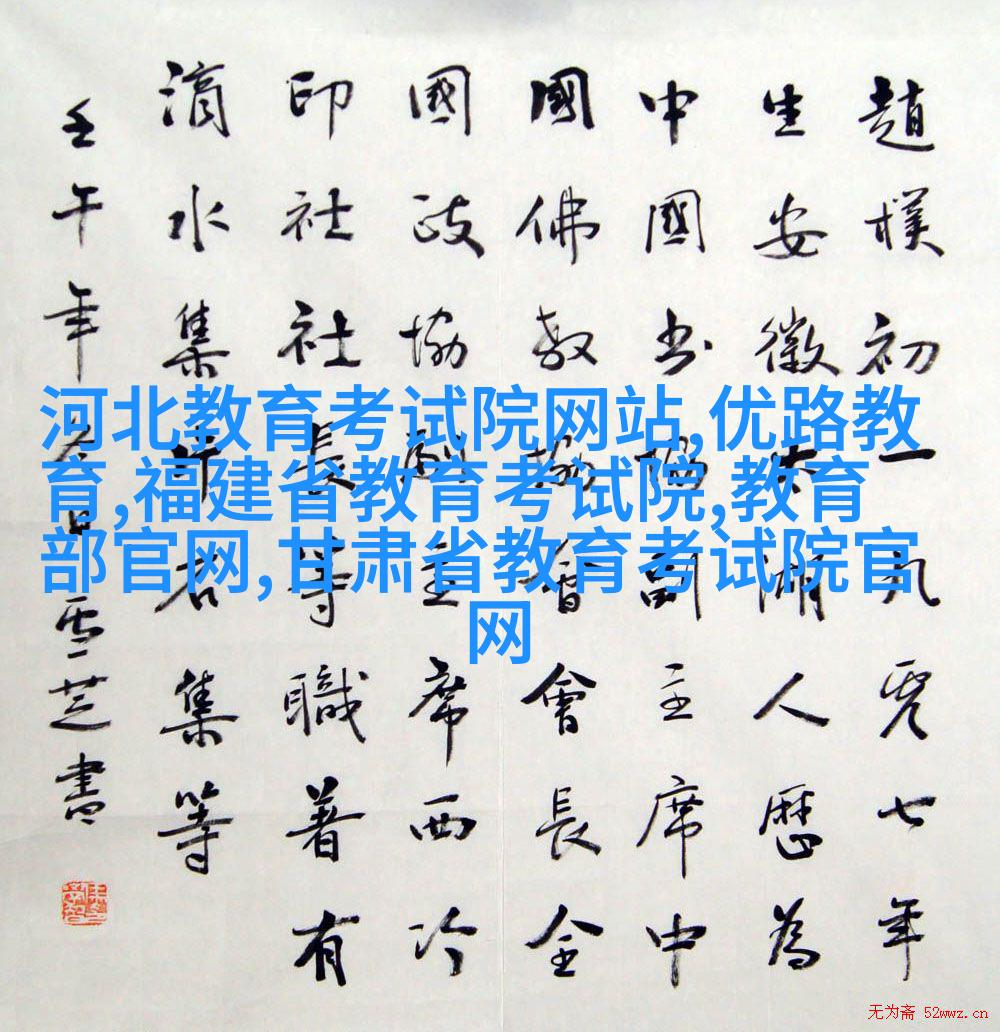 趙樸初一九零七年
生安徽太湖人歷為
中國书協副主席中
國佛教協會會長全
國政協副主席西冷
印社社長等職著有
滴水集片石集等
壬午年冬日雪芝書
河北教育考试院网站,优路教
育,福建省教育考试院,教育
部官网,甘肃省教育考试院官
网
无为斋 52wwz.cn